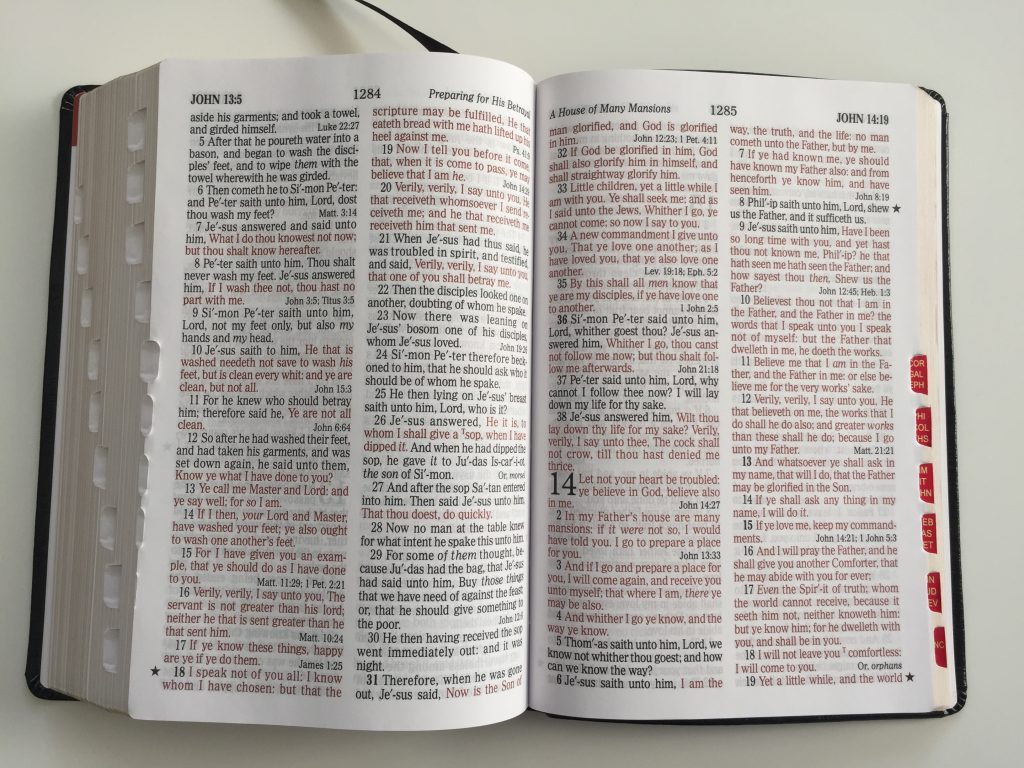 JOHN 13:5
1284
Preparing for His Betrayal
aside his garments; and took a towel,
and girded himself. Luke 22:27
5 After that he poureth water into a
bason, and began to wash the disci-
ples' feet, and to wipe them with the
towel wherewith he was girded.
6 Then cometh he to Si'-mon Pe'-ter:
and Pe'-ter saith unto him, Lord, dost
thou wash my feet? Matt. 3:14
7 Je'-sus answered and said unto
him, What I do thou knowest not now;
but thou shalt know hereafter.
8 Pe'-ter saith unto him, Thou shalt
never wash my feet. Je'-sus answered
him, If I wash thee not, thou hast no
part with me. John 3:5; Titus 3:5
9 Si'-mon Pe'-ter saith unto him,
Lord, not my feet only, but also my
hands and my head.
10 Je'-sus saith to him, He that is
washed needeth not save to wash his
feet, but is clean every whit: and ye are
clean, but not all. John 15:3
11 For he knew who should betray
him; therefore said he, Ye are not all
clean. John 6:64
12 So after he had washed their feet,
and had taken his garments, and was
set down again, he said unto them,
Know ye what I have done to you?
13 Ye call me Master and Lord: and
ye say well; for so I am.
14 If I then, your Lord and Master,
have washed your feet; ye also ought
to wash one another's feet.
15 For I have given you an exam-
ple, that ye should do as I have done
to you. Matt. 11:29; 1 Pet. 2:21
16 Verily, verily, I say unto you, The
servant is not greater than his lord;
neither he that is sent greater than he
that sent him. Matt. 10:24
17 If ye know these things, happy
are ye if ye do them. James 1:25
★ 18 I speak not of you all: I know
whom I have chosen: but that the
scripture may be fulfilled, He that
eateth bread with me hath lifted up his
heel against me. Ps. 41:9
19 Now I tell you before it come,
that, when it is come to pass, ye may
believe that I am he. John 14:29
20 Verily, verily, I say unto you, He
that receiveth whomsoever I send re-
ceiveth me; and he that receiveth me
receiveth him that sent me.
21 When Je'-sus had thus said, he
was troubled in spirit, and testified,
and said, Verily, verily, I say unto you,
that one of you shall betray me.
22 Then the disciples looked one on
another, doubting of whom he spake.
23 Now there was leaning on
Je'-sus' bosom one of his disciples,
whom Je'-sus loved. John 19:26
24 Si'-mon Pe'-ter therefore beck-
oned to him, that he should ask who it
should be of whom he spake.
25 He then lying on Je'-sus' breast
saith unto him, Lord, who is it?
26 Je'-sus answered, He it is, to
whom I shall give a sop, when I have
dipped it. And when he had dipped the
sop, he gave it to Ju'-das Is-car'-i-ot,
the son of Si'-mon. Or, morsel
27 And after the sop Sa'-tan entered
into him. Then said Je'-sus unto him,
That thou doest, do quickly.
28 Now no man at the table knew
for what intent he spake this unto him.
29 For some of them thought, be-
cause Ju'-das had the bag, that Je'-sus
had said unto him, Buy those things
that we have need of against the feast;
or, that he should give something to
the poor. John 12:6
30 He then having received the sop
went immediately out: and it was
night.
31 Therefore, when he was gone
out, Je'-sus said, Now is the Son of
A House of Many Mansions
1285
JOHN 14:19
man glorified, and God is glorified
in him. John 12:23; 1 Pet. 4:11
32 If God be glorified in him, God
shall also glorify him in himself, and
shall straightway glorify him.
33 Little children, yet a little while I
am with you. Ye shall seek me: and as
I said unto the Jews, Whither I go, ye
cannot come; so now I say to you.
34 A new commandment I give unto
you, That ye love one another; as I
have loved you, that ye also love one
another. Lev. 19:18; Eph. 5:2
35 By this shall all men know that
ye are my disciples, if ye have love one
to another. 1 John 2:5
36 Si'-mon Pe'-ter said unto him,
Lord, whither goest thou? Je'-sus an-
swered him, Whither I go, thou canst
not follow me now; but thou shalt fol-
low me afterwards. John 21:18
37 Pe'-ter said unto him, Lord, why
cannot I follow thee now? I will lay
down my life for thy sake.
38 Je'-sus answered him, Wilt thou
lay down thy life for my sake? Verily,
verily, I say unto thee, The cock shall
not crow, till thou hast denied me
thrice.
14 Let not your heart be troubled:
ye believe in God, believe also
in me. John 14:27
2 In my Father's house are many
mansions: if it were not so, I would
have told you. I go to prepare a place
for you. John 13:33
3 And if I go and prepare a place for
you, I will come again, and receive you
unto myself; that where I am, there ye
may be also.
4 And whither I go ye know, and the
way ye know.
5 Thom'-as saith unto him, Lord, we
know not whither thou goest; and how
can we know the way?
6 Je'-sus saith unto him, I am the
way, the truth, and the life: no man
cometh unto the Father, but by me.
7 If ye had known me, ye should
have known my Father also: and from
henceforth ye know him, and have
seen him. John 8:19
8 Phil'-ip saith unto him, Lord, shew ★
us the Father, and it sufficeth us.
9 Je'-sus saith unto him, Have I been
so long time with you, and yet hast
thou not known me, Phil'-ip? he that
hath seen me hath seen the Father; and
how sayest thou then, Shew us the
Father? John 12:45; Heb. 1:3
10 Believest thou not that I am in
the Father, and the Father in me? the
words that I speak unto you I speak
not of myself: but the Father that
dwelleth in me, he doeth the works.
11 Believe me that I am in the Fa-
ther, and the Father in me: or else be-
lieve me for the very works' sake.
12 Verily, verily, I say unto you, He
that believeth on me, the works that I
do shall he do also; and greater works
than these shall he do; because I go
unto my Father. Matt. 21:21
13 And whatsoever ye shall ask in
my name, that will I do, that the Father
may be glorified in the Son.
14 If ye shall ask any thing in my
name, I will do it.
15 If ye love me, keep my command-
ments. John 14:21; 1 John 5:3
16 And I will pray the Father, and he
shall give you another Comforter, that
he may abide with you for ever;
17 Even the Spir'-it of truth; whom
the world cannot receive, because it
seeth him not, neither knoweth him:
but ye know him; for he dwelleth with
you, and shall be in you.
18 I will not leave you comfortless:
I will come to you. Or, orphans
19 Yet a little while, and the world ★
COR
GAL
EPH
COL